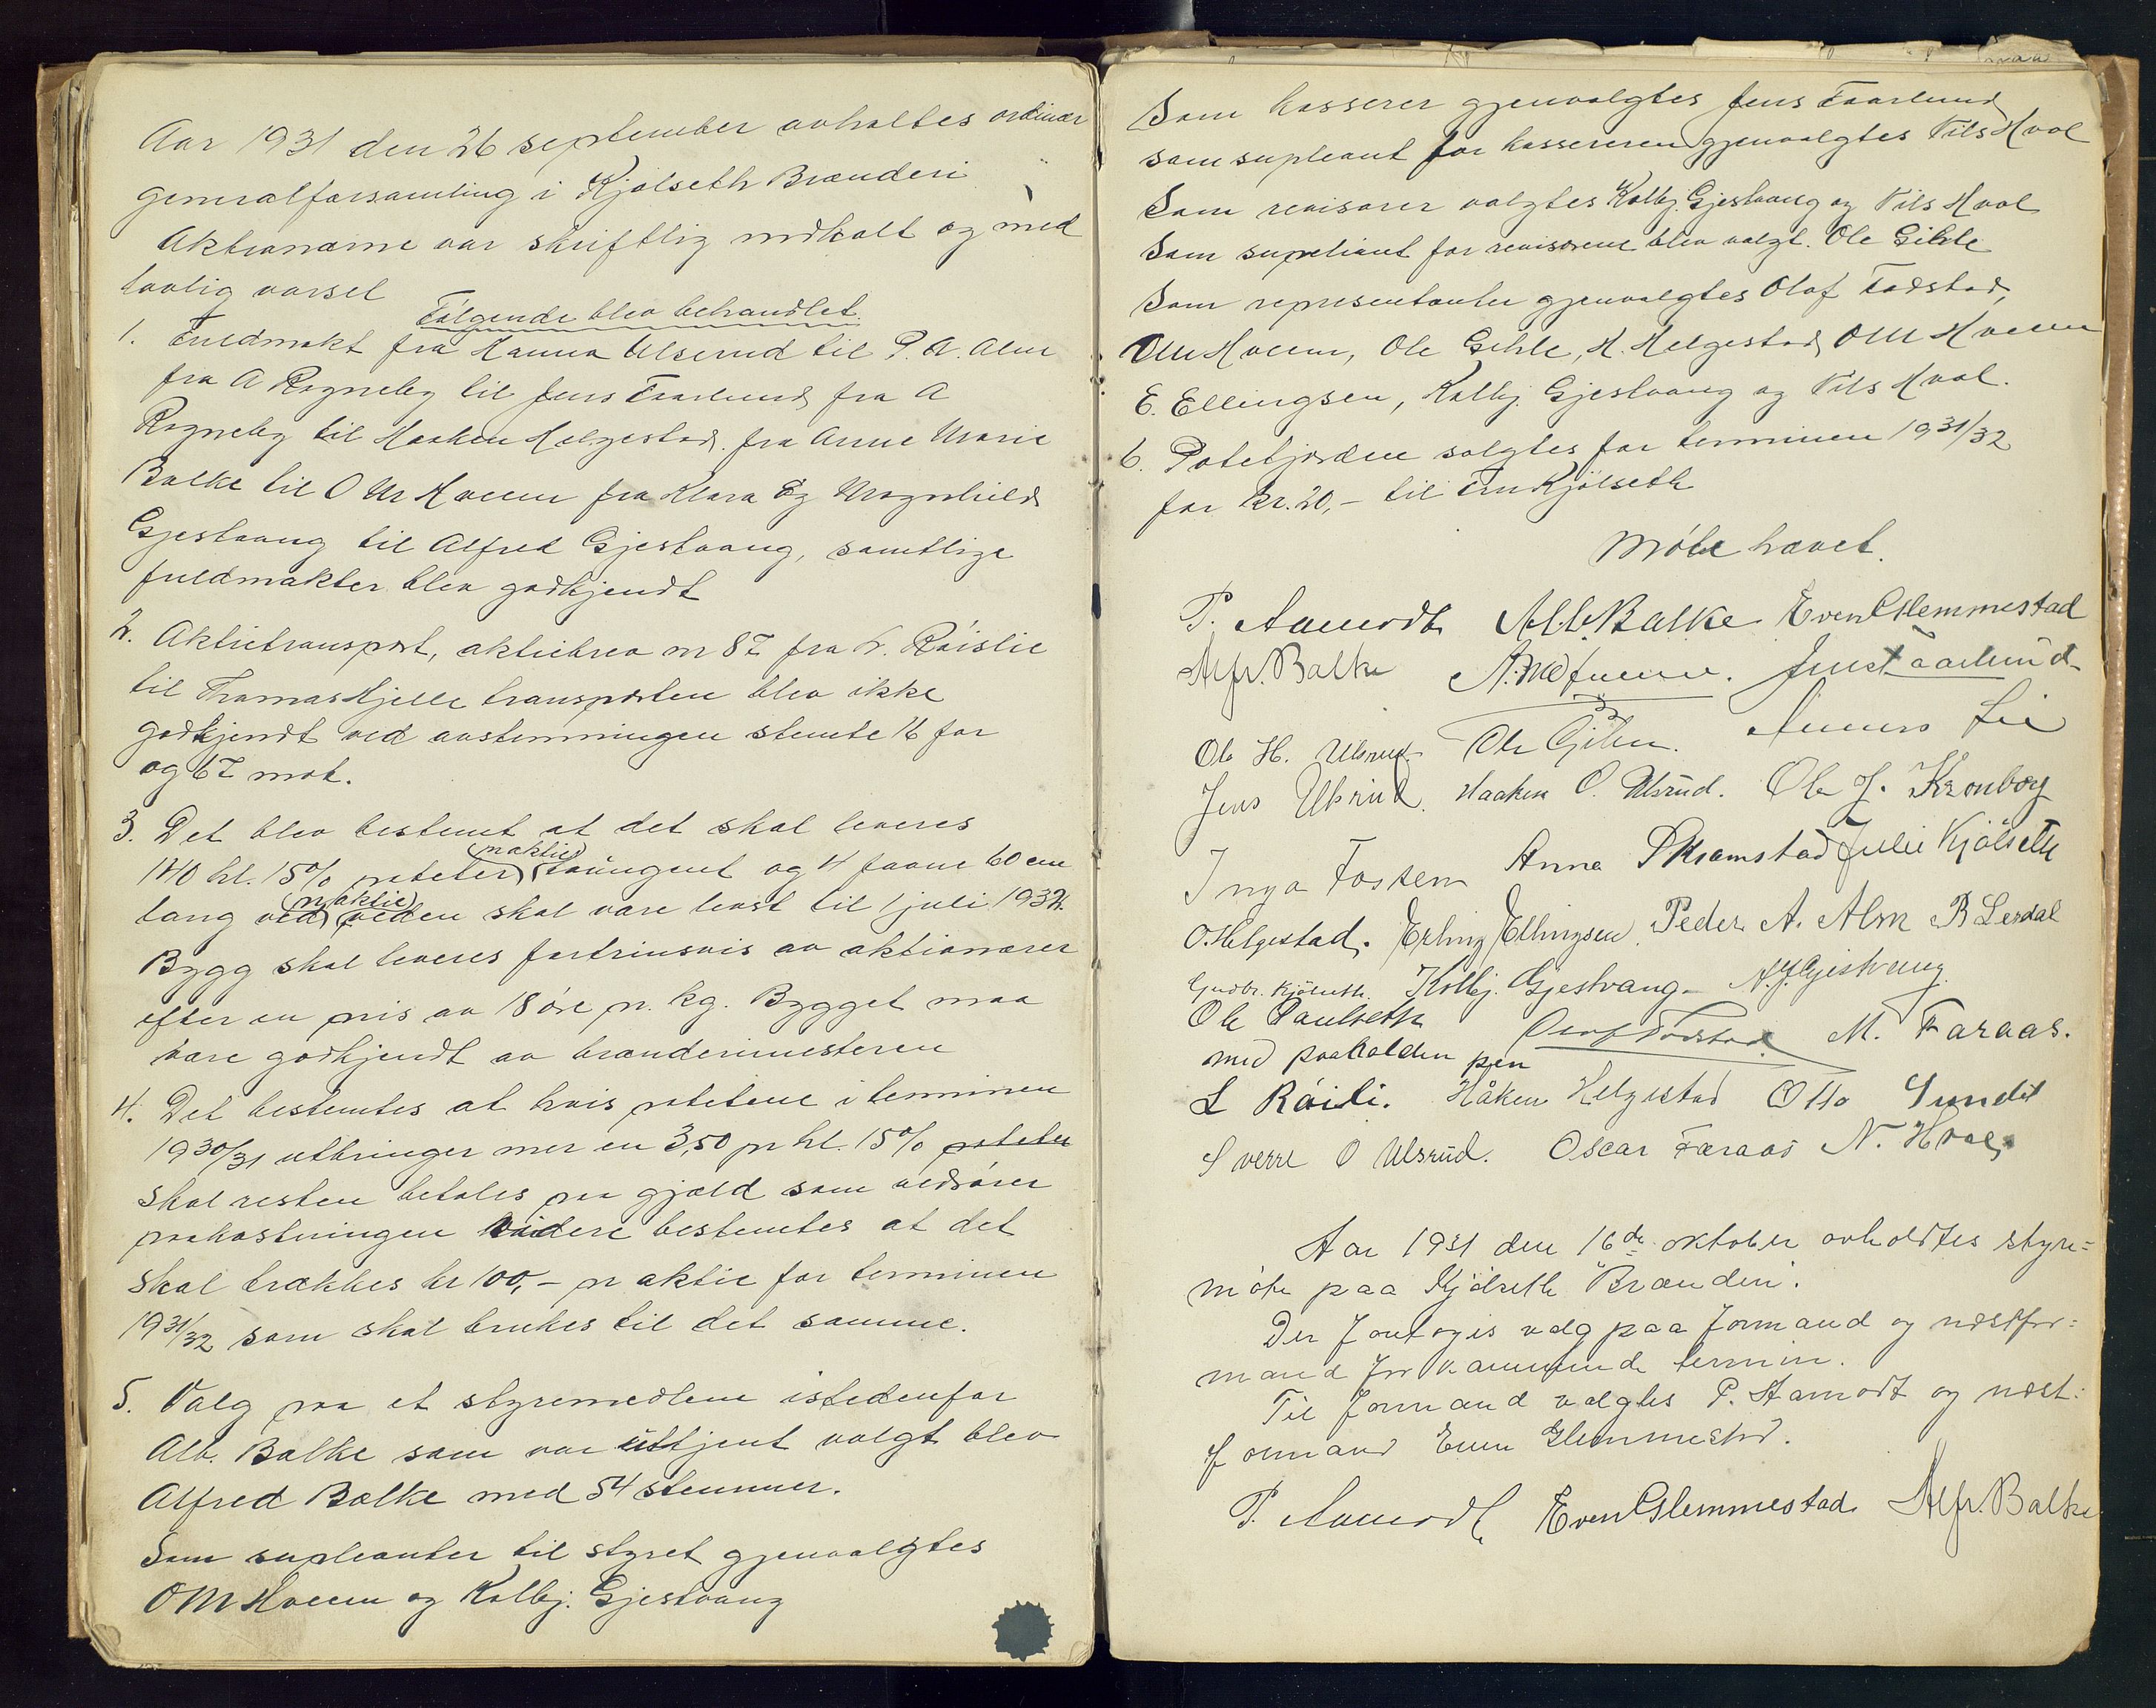 Aar 1931 den 26 september avholtes ordinær
generalforsamling i Kjølseth Brænderi
Aktionærne var skriftlig indkalt og med
lovlig varsel
Følgende blev behandlet.
1. Fuldmakt fra Hanna Ulsrud til P. A. Alm
fra A Rogneby til Jens Faarlund fra A
Rogneby til Haaken Helgestad. fra Anne Marie
Balke til O M Hveem fra Klara og Magnhild
Gjestvang til Alfred Gjestvang, samtlige
fuldmakter blev godkjendt
2. Aktietransport, aktiebrev nr 87 fra L. Røislie
til Thomas Hjelle transporten blev ikke
godkjendt ved avstemningen stemte 16 for
og 67 mot.
3. Det blev bestemt at det skal leveres
(pr aktie)
140 hl. 15% poteter tvungent og 4 favne 60 cm
(pr aktie)
lang ved veden skal være levert til 1 juli 1932.
Bygg skal leveres fortrinsvis av aktionærer
efter en pris av 18 øre pr. kg. Bygget maa
være godkjendt av brænderimesteren
4. Det bestemtes at hvis potetene i terminen
1930/31 utbringer mer en 3,50 pr hl. 15% poteter
skal resten betales paa gjæld som vedrører
paakostningen videre bestemtes at det
skal trækkes kr 100,- pr aktie for terminen
1931/32 som skal brukes til det samme.
5. Valg paa et styremedlem istedenfor
Alb. Balke som var uttjent valgt blev
Alfred Balke med 54 stemmer.
Som supleanter til styret gjenvalgtes
O M Hveem og Kolbj. Gjestvang
Som kasserer gjenvalgtes Jens Faarlund
som supleant for kassereren gjenvalgtes Nils Hval
Som revisorer valgtes Kolbj. Gjestvang og Nils Hval
Som supleant for revisorene blev valgt. Ole Gihle
Som representanter gjenvalgtes Olaf Fodstad,
O M Hveem, Ole Gihle, H. Helgestad O M Hveem
E. Ellingsen, Kolbj. Gjestvang og Nils Hval.
6. Potetjorden solgtes for terminen 1931/32
for kr. 20,- til Fru Kjølseth
Møte hævet.
P. Aamodt Alb. Balke Even Glemmestad
Alfr. Balke Jens Faarlund
Ole H. Ulsrud Ole Gihle. Lie
Jens Ulsrud. Haaken O. Ulsrud. Ole J. Kronborg
Inga Fossem Anna Skramstad Julie Kjølseth
O. Helgestad. Erling Ellingsen. Peder A. Alm B Lerdal
Gudbr. Kjölseth. Kolbj. Gjestvang A. J. Gjestvang
Ole Paulseth Olaf Fodstad. M. Faraas.
med paaholden pen
L Røisli. Håken Helgestad Otto Sundet
Sverre O Ulsrud. Oscar Faraas N. Hval.
Aar 1931 den 16de oktober avholdtes styre=
møte paa Kjølseth Brænderi.
Der foretoges valg paa formand og næstfor=
mand for kommende termin.
Til formand valgtes P. Aamodt og næst=
formand Even Glemmestad.
P. Aamodt Even Glemmestad Alfr. Balke